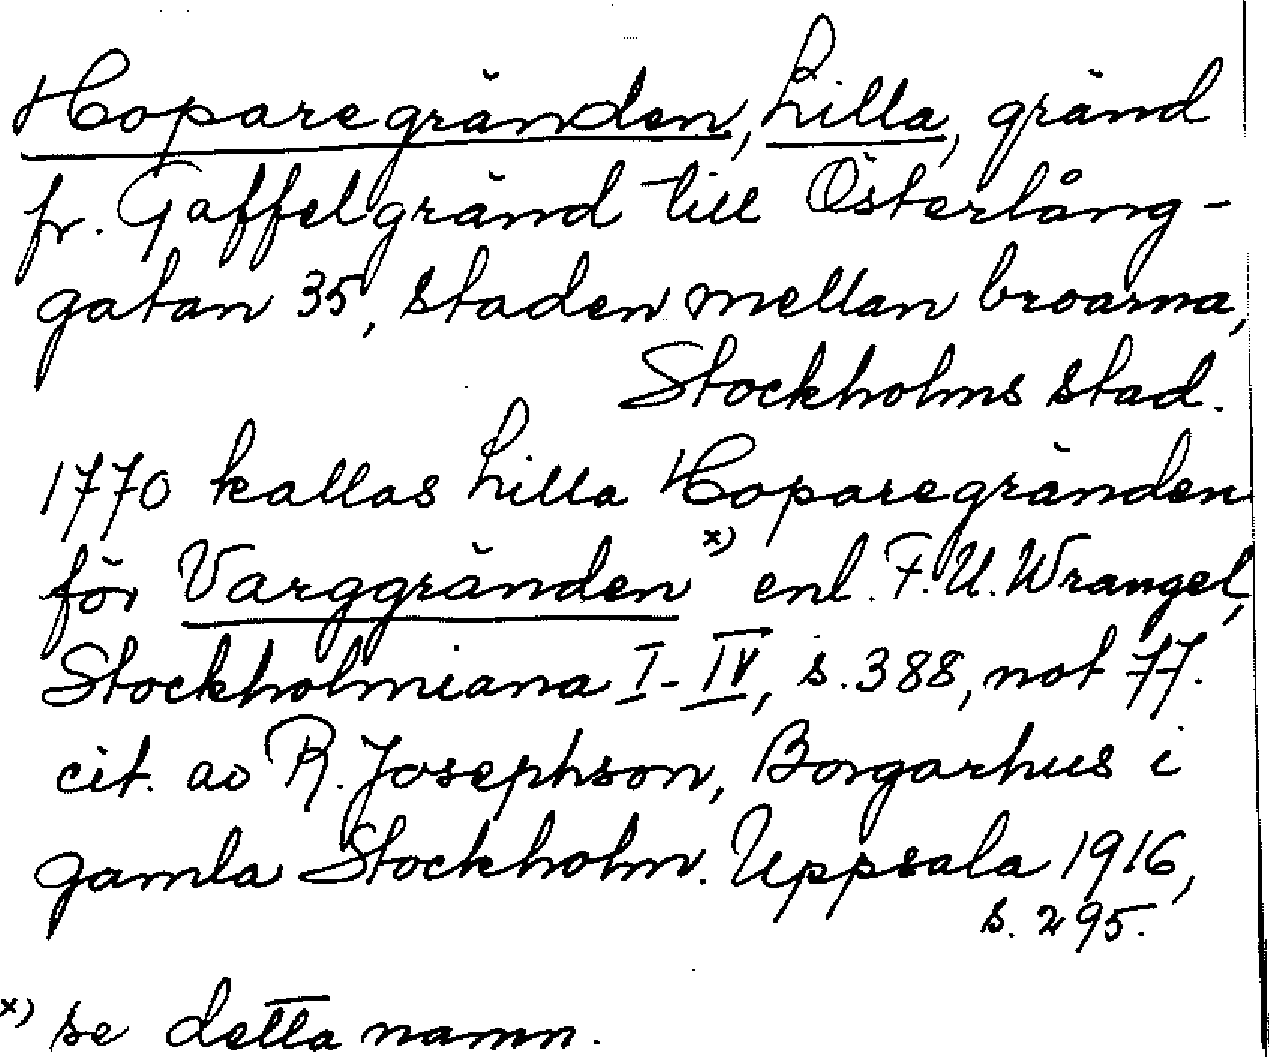 Hoparegränden, Lilla, gränd
fr. Gaffelgränd till Österlång-
gatan 35, staden mellan broarna,
Stockholms stad.
1770 kallas Lilla Hoparegränden
för Varggränden x) enl. F.U. Wrangel,
Stockholmiana I-IV, s. 388, not 77.
cit. av R. Josephson, Borgarhus i
gamla Stockholm. Uppsala 1916,
s. 295.
x) se detta namn.